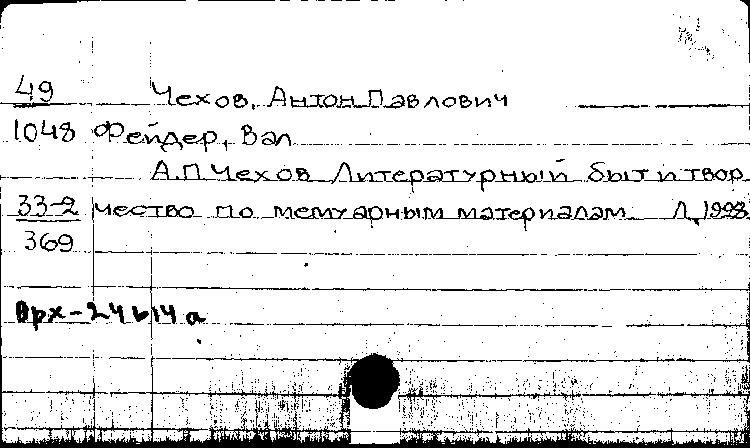 49 Чехов, Антон Павлович
1048 Фейдер, Вал
А.П. Чехов Литературный быт и твор
33-2 чество по мемуарным материалам Л, 1928
369